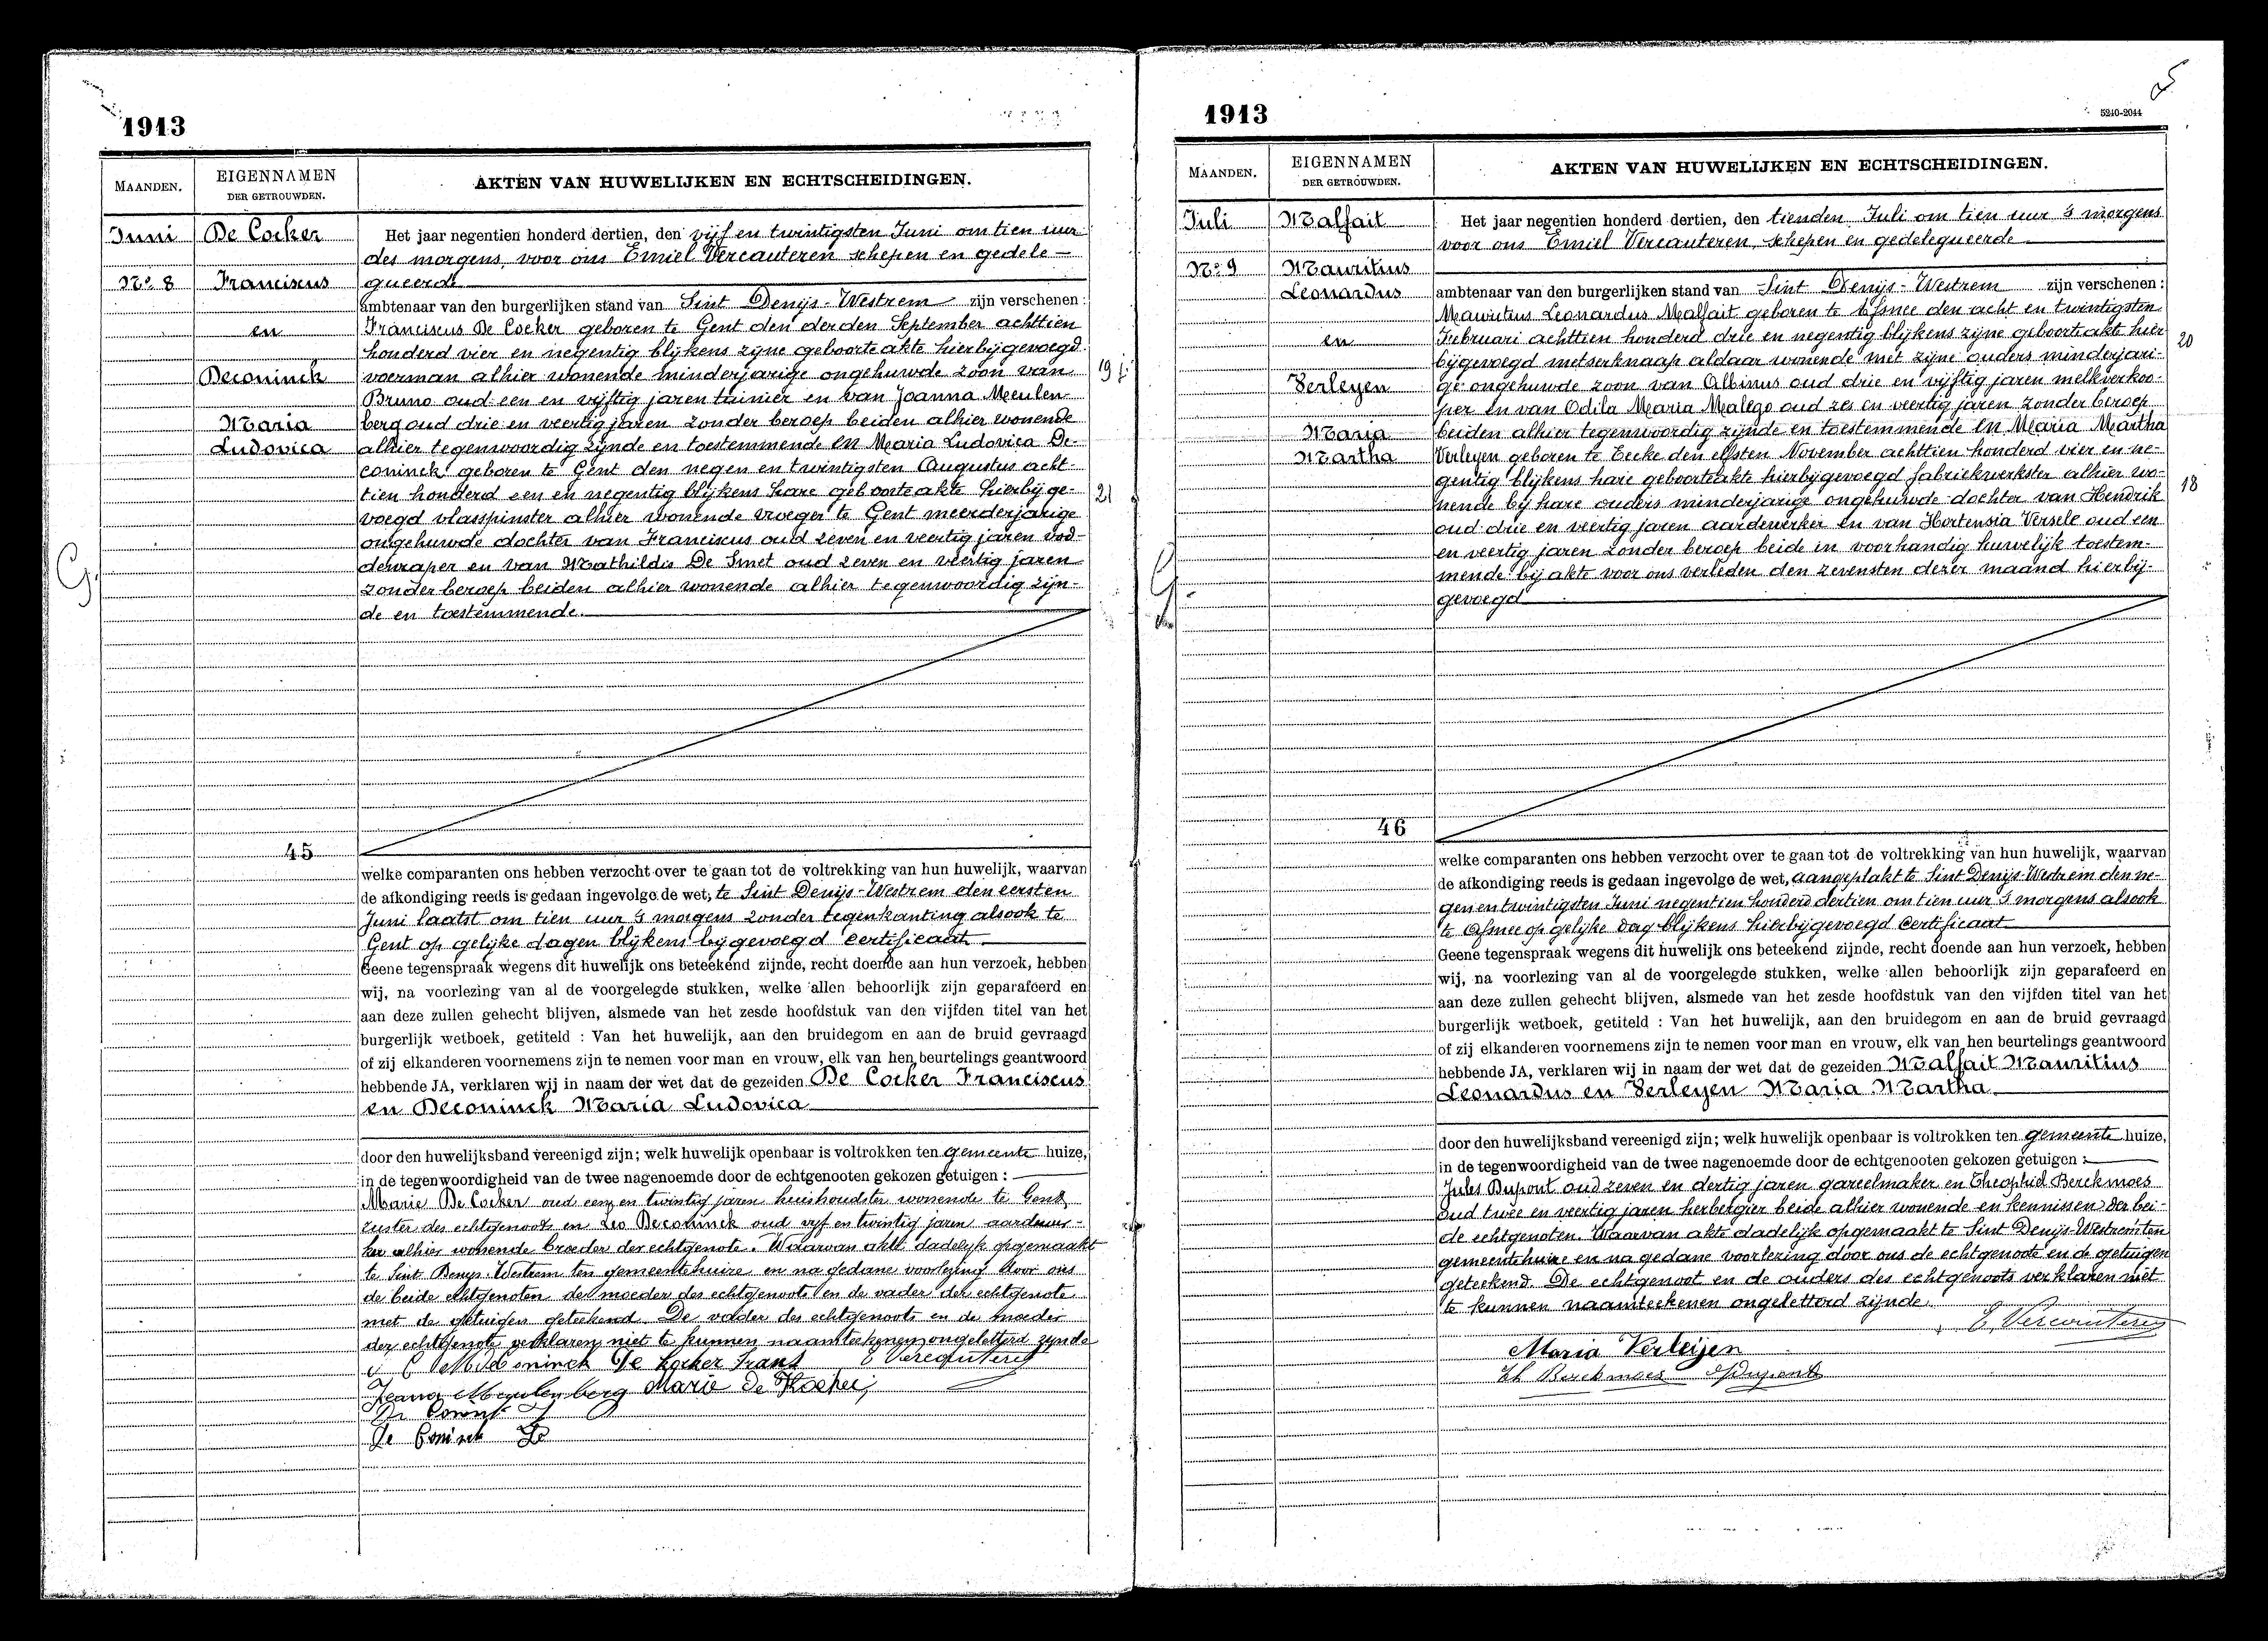 1913
MAANDEN.
EIGENNAMEN
DER GETROUWDEN.
AKTEN VAN HUWELIJKEN EN ECHTSCHEIDINGEN.
Juni
No 8
De Cocker
Franciscus
en
Deconinck
Maria
Ludovica
45
Het jaar negentien honderd dertien, den vijf en twintigsten Juni om tien uur
des morgens, voor ons Emiel Vercauteren schepen en gedele-
gueerde
ambtenaar van den burgerlijken stand van Sint Denijs-Westrem zijn verschenen :
Franciscus De Cocker geboren te Gent den derden September achttien
honderd vier en negentig blijkens zijne geboorteakte hierbijgevoegd
voerman alhier wonende minderjarige ongehuwde zoon van
Bruno oud een en vijftig jaren tuinier en van Joanna Meulen-
berg oud drie en veertig jaren zonder beroep beiden alhier wonende
alhier tegenwoordig zijnde en toestemmende en Maria Ludovica De-
coninck geboren te Gent den negen en twintigsten Augustus acht-
tien honderd een en negentig blijkens hare geboorteakte hierbij ge-
voegd vlasspinster alhier wonende vroeger te Gent meerderjarige
ongehuwde dochter van Franciscus oud zeven en veertig jaren vod-
denraper en van Mathildis De Smet oud zeven en veertig jaren
zonder beroep beiden alhier wonende alhier tegenwoordig zijn-
de en toestemmende.
19
21
G.
welke comparanten ons hebben verzocht over te gaan tot de voltrekking van hun huwelijk, waarvan
de afkondiging reeds is gedaan ingevolge de wet, te Sint Denijs-Westrem den eersten
Juni laatst om tien uur 's morgens zonder tegenkanting alsook te
Gent op gelijke dagen blijkens bijgevoegd certificaat
Geene tegenspraak wegens dit huwelijk ons beteekend zijnde, recht doende aan hun verzoek, hebben
wij, na voorlezing van al de voorgelegde stukken, welke allen behoorlijk zijn geparafeerd en
aan deze zullen gehecht blijven, alsmede van het zesde hoofdstuk van den vijfden titel van het
burgerlijk wetboek, getiteld : Van het huwelijk, aan den bruidegom en aan de bruid gevraagd
of zij elkanderen voornemens zijn te nemen voor man en vrouw, elk van hen beurtelings geantwoord
hebbende JA, verklaren wij in naam der wet dat de gezeiden De Cocker Franciscus
en Deconinck Maria Ludovica
door den huwelijksband vereenigd zijn; welk huwelijk openbaar is voltrokken ten gemeente huize,
in de tegenwoordigheid van de twee nagenoemde door de echtgenooten gekozen getuigen :
Marie De Cocker oud een en twintig jaren huishoudster wonende te Gent
zuster des echtgenoots en Leo Deconinck oud vijf en twintig jaren aardewer-
ker alhier wonende broeder der echtgenote. Waarvan akte dadelijk opgemaakt
te Sint Denijs-Westrem ten gemeentehuize en na gedane voorlezing door ons
de beide echtgenoten de moeder des echtgenoots en de vader der echtgenote
met de getuigen geteekend. De vader des echtgenoots en de moeder
der echtgenote verklaren niet te kunnen naamteekenen ongeletterd zijnde
De Cocker Frans E Vercauteren
Jeana Meulenberg Marie De Kocker
De Coninck
1913
5240-2044
MAANDEN.
EIGENNAMEN
DER GETROUWDEN.
AKTEN VAN HUWELIJKEN EN ECHTSCHEIDINGEN.
Juli
No 9
Malfait
Mauritius
Leonardus
en
Verleyen
Maria
Martha
46
Het jaar negentien honderd dertien, den tienden Juli om tien uur 's morgens
voor ons Emiel Vercauteren, schepen en gedelegueerde
ambtenaar van den burgerlijken stand van Sint Denijs-Westrem zijn verschenen :
Mauritius Leonardus Malfait geboren te Afsnee den acht en twintigsten
Februari achttien honderd drie en negentig blijkens zijne geboorteakte hier
bijgevoegd metserknaap aldaar wonende met zijne ouders minderjari-
ge ongehuwde zoon van Albinus oud drie en vijftig jaren melkverkoo-
per en van Odila Maria Malego oud zes en veertig jaren zonder beroep
beiden alhier tegenwoordig zijnde en toestemmende en Maria Martha
Verleyen geboren te Eecke den elfsten November achttien honderd vier en ne-
gentig blijkens hare geboorteakte hierbijgevoegd fabriekwerkster alhier wo-
nende bij hare ouders minderjarige ongehuwde dochter van Hendrik
oud drie en veertig jaren aardewerker en van Hortensia Versele oud een
en veertig jaren zonder beroep beide in voorhandig huwelijk toestem-
mende bij akte voor ons verleden den zevensten dezer maand hierbij-
gevoegd
20
18
welke comparanten ons hebben verzocht over te gaan tot de voltrekking van hun huwelijk, waarvan
de afkondiging reeds is gedaan ingevolge de wet, aangeplakt te Sint Denijs-Westrem den ne-
gen en twintigsten Juni negentien honderd dertien om tien uur 's morgens alsook
te Afsnee op gelijke dag blijkens hierbijgevoegd certificaat
Geene tegenspraak wegens dit huwelijk ons beteekend zijnde, recht doende aan hun verzoek, hebben
wij, na voorlezing van al de voorgelegde stukken, welke allen behoorlijk zijn geparafeerd en
aan deze zullen gehecht blijven, alsmede van het zesde hoofdstuk van den vijfden titel van het
burgerlijk wetboek, getiteld : Van het huwelijk, aan den bruidegom en aan de bruid gevraagd
of zij elkanderen voornemens zijn te nemen voor man en vrouw, elk van hen beurtelings geantwoord
hebbende JA, verklaren wij in naam der wet dat de gezeiden Malfait Mauritius
Leonardus en Verleyen Maria Martha
door den huwelijksband vereenigd zijn; welk huwelijk openbaar is voltrokken ten gemeente huize,
in de tegenwoordigheid van de twee nagenoemde door de echtgenooten gekozen getuigen :
Jules Dupont oud zeven en dertig jaren gareelmaker en Theophiel Berckmoes
oud twee en veertig jaren herbergier beide alhier wonende en kennissen der bei-
de echtgenoten. Waarvan akte dadelijk opgemaakt te Sint Denijs-Westrem ten
gemeentehuize en na gedane voorlezing door ons de echtgenoote en de getuigen
geteekend. De echtgenoot en de ouders des echtgenoots verklaren niet
te kunnen naamteekenen ongeletterd zijnde.
E. Vercauteren
Maria Verleijen
Th Berckmoes Dupont